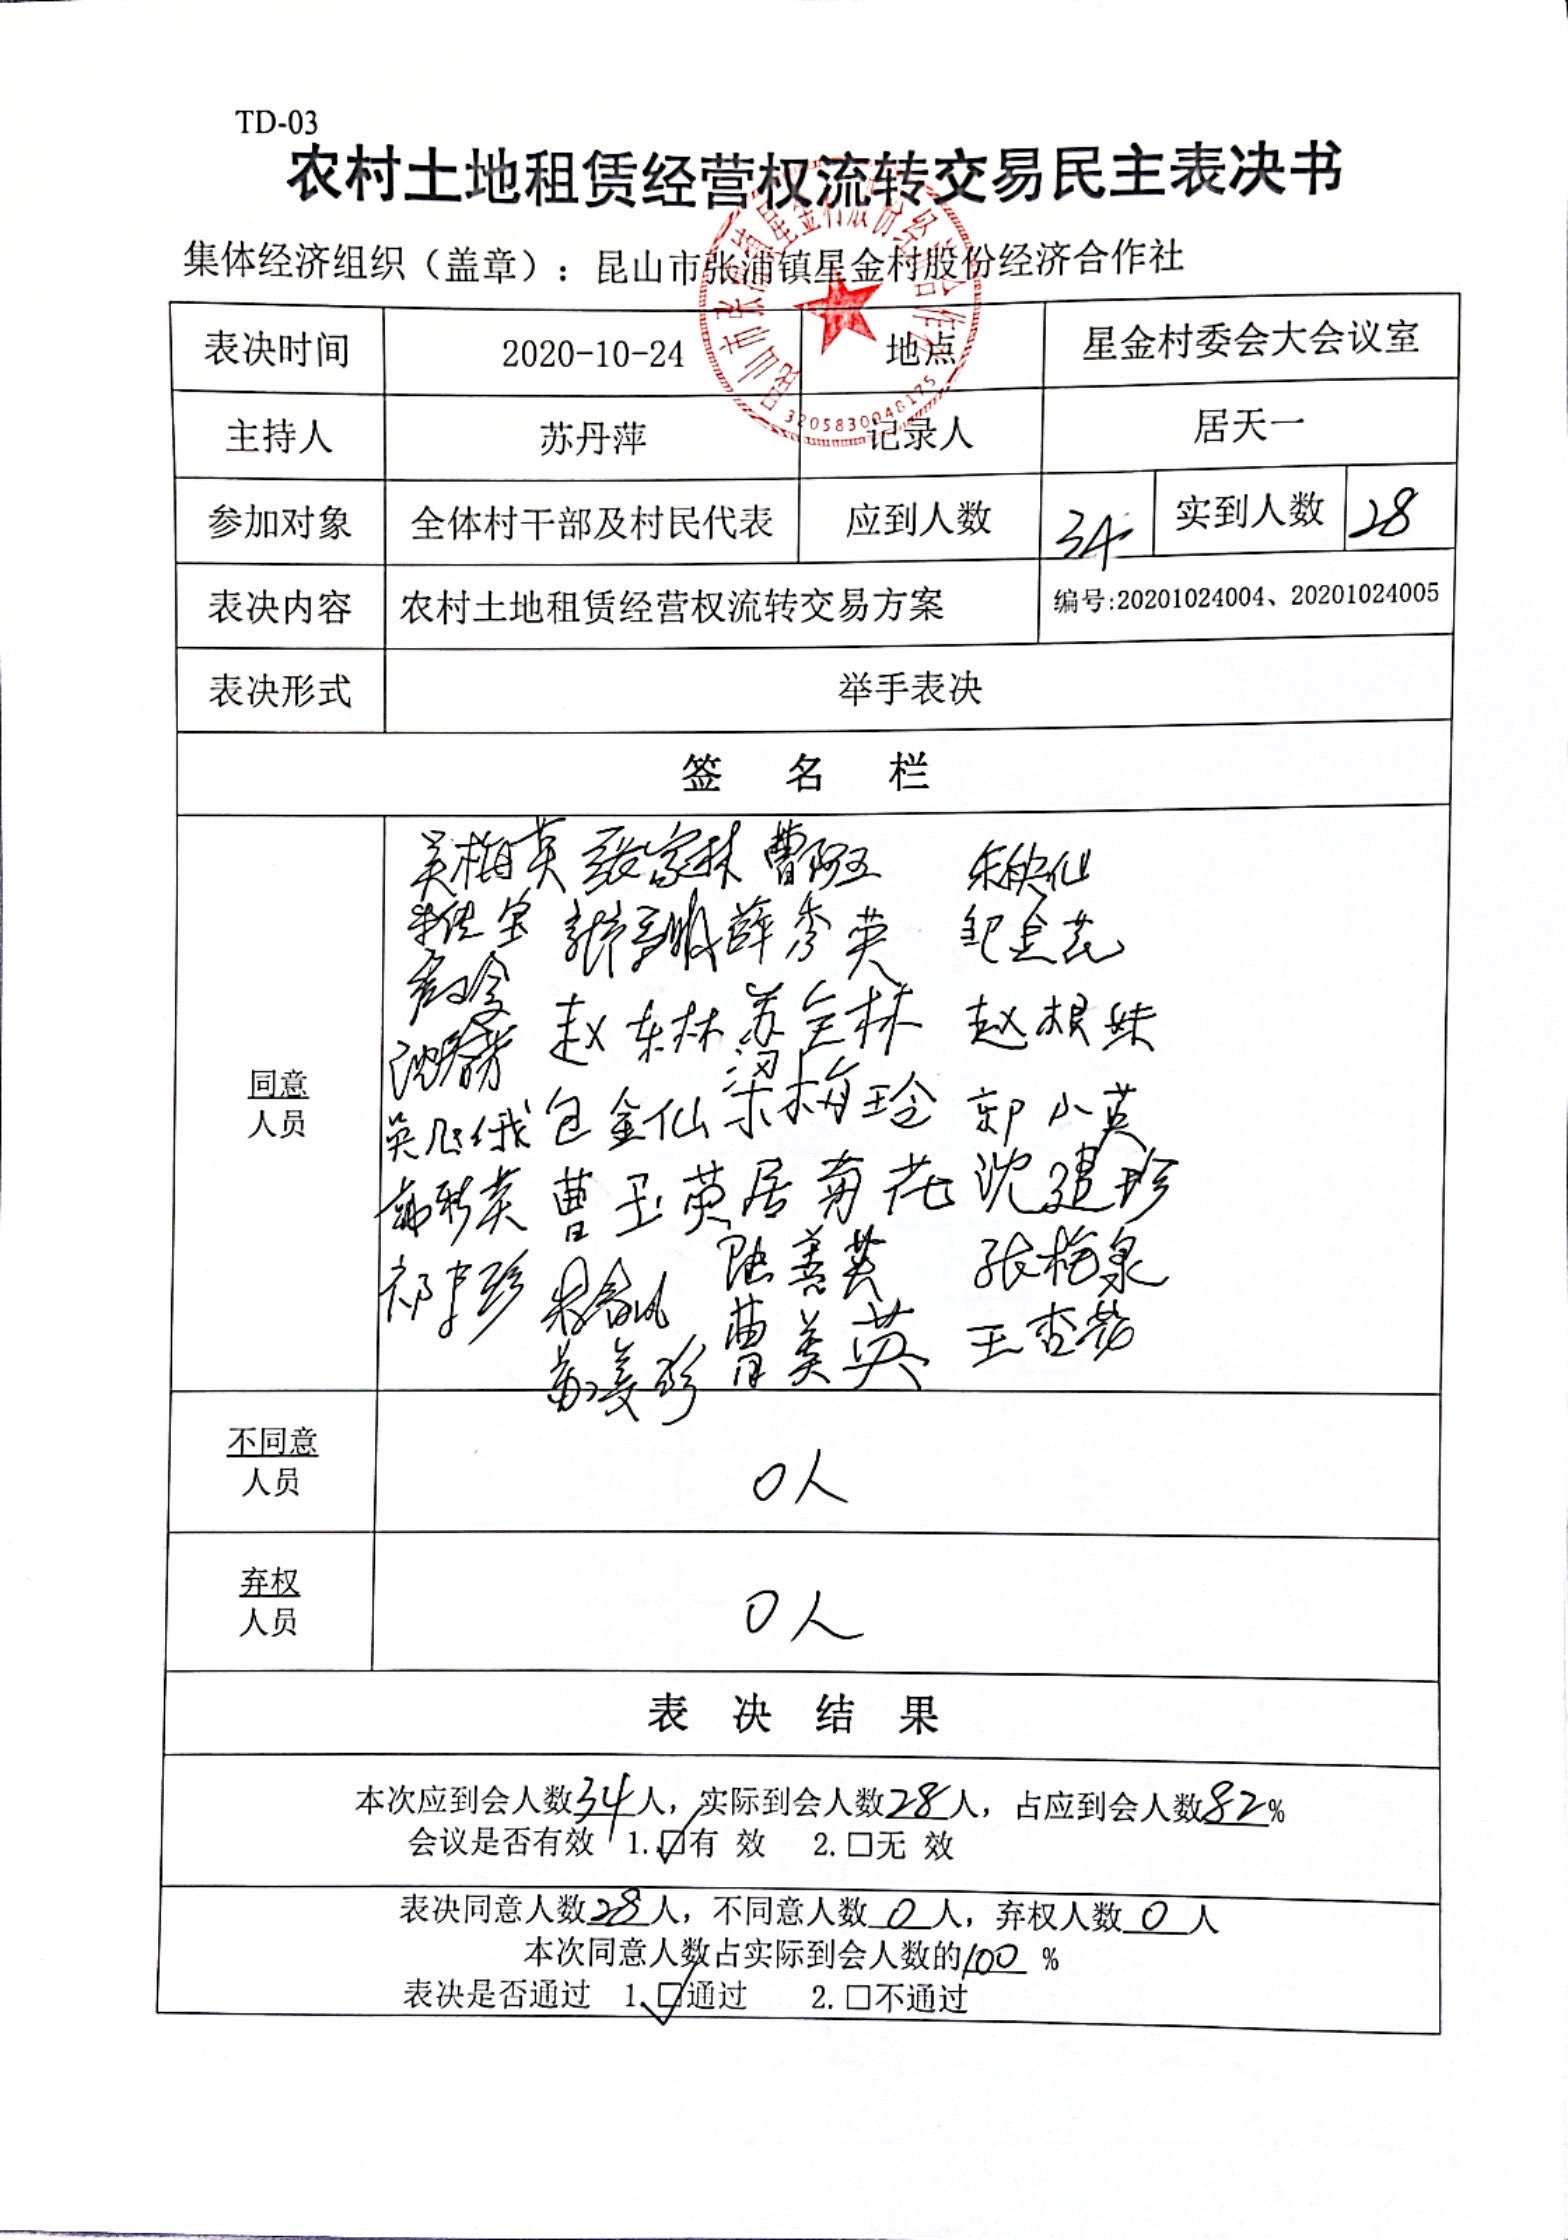 TD-03
农村土地租赁经营权流转交易民主表决书
集体经济组织（盖章）：昆山市张浦镇星金村股份经济合作社
昆山市张浦镇星金村股份经济合作社
3205830048175
表决时间 2020-10-24 地点 星金村委会大会议室
主持人 苏丹萍 记录人 居天一
参加对象 全体村干部及村民代表 应到人数 34 实到人数 28
表决内容 农村土地租赁经营权流转交易方案 编号:20201024004、20201024005
表决形式 举手表决
签 名 栏
同意
人员
吴梅英 张家林 曹阿五
薛秀英
赵东林 苏全林 赵根妹
包金仙 梁梅玲 郭小英
曹玉英 居菊花 沈建珍
陆善英 张梅泉
曹美英 王杏芬
不同意
人员
0人
弃权
人员
0人
表 决 结 果
本次应到会人数34人，实际到会人数28人，占应到会人数82%
会议是否有效 1.☑有 效 2.□无 效
表决同意人数28人，不同意人数0人，弃权人数0人
本次同意人数占实际到会人数的100%
表决是否通过 1.☑通过 2.□不通过